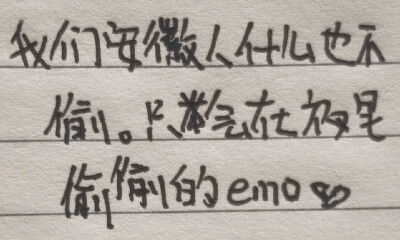 我们安徽人什么也不
偷。只会在被里
偷偷的emo